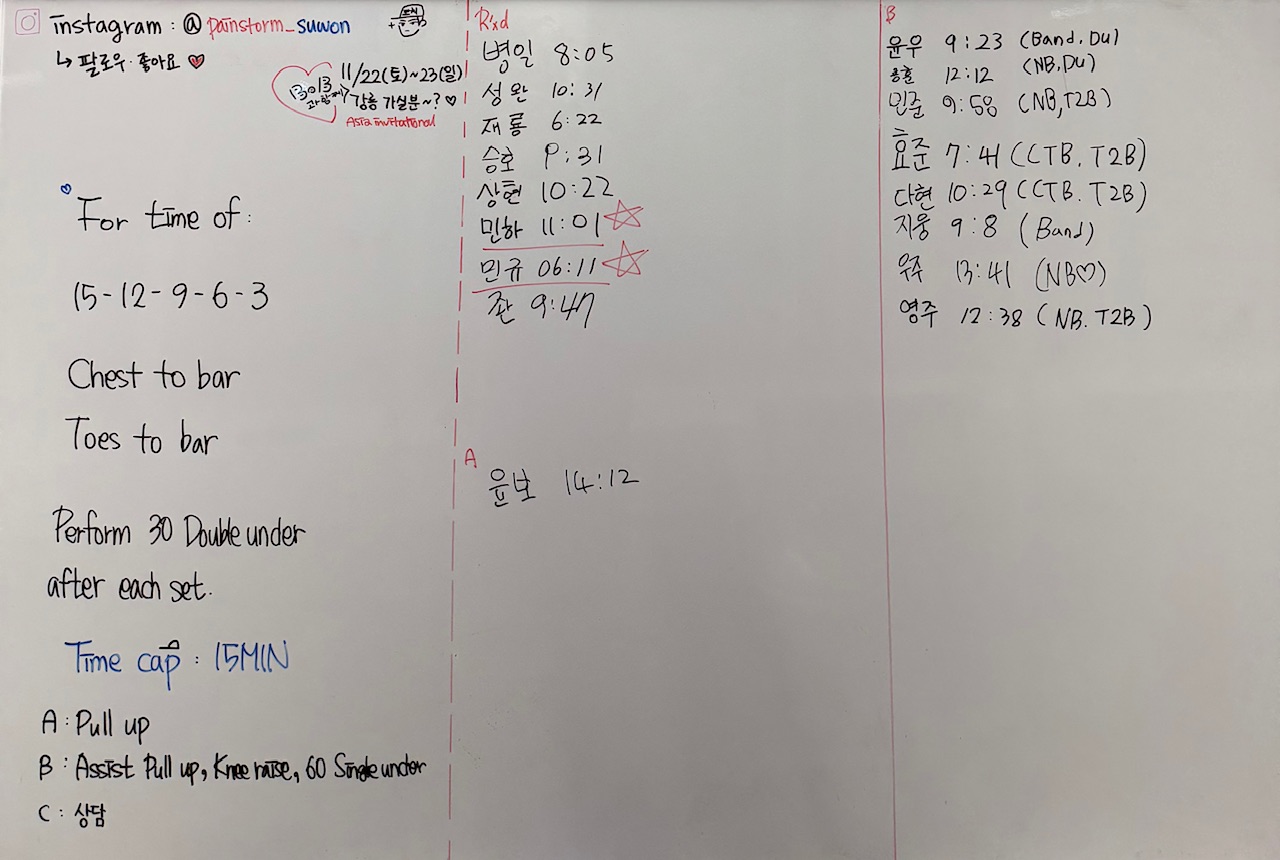 instagram : @ painstorm_suwon
↳ 팔로우·좋아요 ♥
11/22(토)~23(일)
강릉 가실분~? ♡
Asia invitational
For time of:
15-12-9-6-3
Chest to bar
Toes to bar
Perform 30 Double under
after each set.
Time cap : 15MIN
A : Pull up
B : Assist Pull up, Knee raise, 60 Single under
C : 상담
R'xd
병일 8:05
성완 10:31
재룡 6:22
승호 9:31
상현 10:22
민하 11:01
민규 06:11
좐 9:47
A
윤보 14:12
B
윤우 9:23 (Band, DU)
용훈 12:12 (NB, DU)
민준 9:58 (NB, T2B)
효준 7:41 (CTB, T2B)
다현 10:29 (CTB. T2B)
지웅 9:8 (Band)
우주 13:41 (NB♡)
영주 12:38 (NB. T2B)